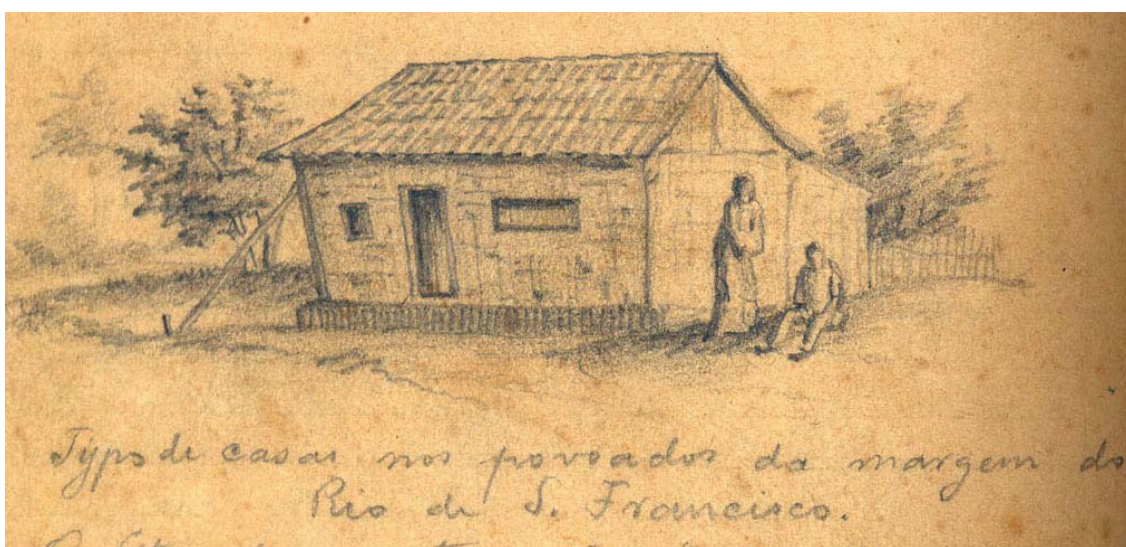 Typo de casas nos povoados da margem do
Rio de S. Francisco.